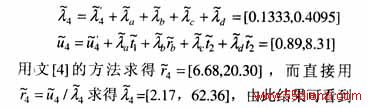 λ̃₄ = λ̃₄′ + λ̃ₐ + λ̃_b + λ̃_c + λ̃_d = [0.1333,0.4095]
ũ₄ = ũ₄′ + λ̃ₐt̃₁ + λ̃_b r̃_b + λ̃_c t̃₂ + λ̃_d t̃₂ = [0.89,8.31]
用文[4]的方法求得 r̃₄ = [6.68,20.30] ，而直接用
r̃₄ = ũ₄ / λ̃₄ 求得 λ̃₄ =[2.17，62.36]，由此结果可看到